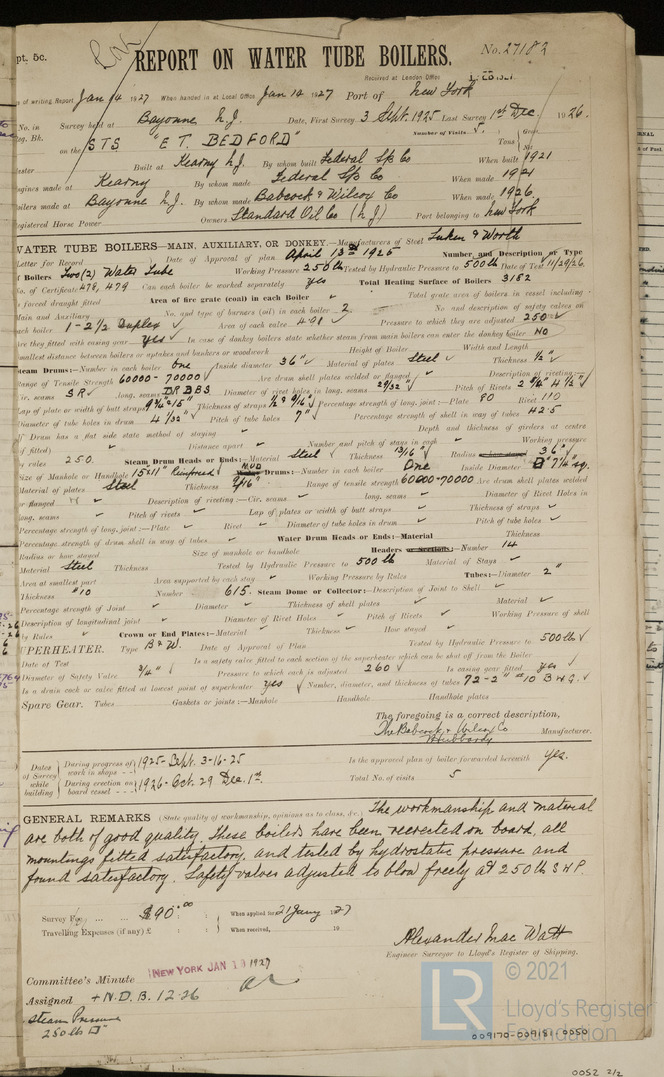 pt. &c.
REPORT ON WATER TUBE BOILERS.
No. 27182
Received at London Office
of writing Report Jan 14 1927 When handed in at Local Office Jan 14 1927 Port of New York
No. in Survey held at Bayonne N.J. Date, First Survey 3 Sept. 1925 Last Survey 1st Dec. 1926.
Reg. Bk. Number of Visits 5
on the STS "E T. BEDFORD" Tons Gross Net
Master Built at Kearny N.J. By whom built Federal S/b Co When built 1921
Engines made at Kearny By whom made Federal S/b Co When made 1921
Boilers made at Bayonne N.J. By whom made Babcock & Wilcox Co When made 1926
Registered Horse Power Owners Standard Oil Co (N.J.) Port belonging to New York
WATER TUBE BOILERS—MAIN, AUXILIARY, OR DONKEY.—Manufacturers of Steel Luken & Worth
Letter for Record Date of Approval of plan April 13th 1925 Number and Description or Type
of Boilers Two (2) Water Tube Working Pressure 250 lb Tested by Hydraulic Pressure to 500 lb Date of Test 11/29/26
No. of Certificate 478, 479 Can each boiler be worked separately yes Total Heating Surface of Boilers 3182
is forced draught fitted Area of fire grate (coal) in each Boiler Total grate area of boilers in vessel including
Main and Auxiliary No. and type of burners (oil) in each boiler 2 No. and description of safety valves on
each boiler 1 - 2½ Duplex Area of each valve 4.91 Pressure to which they are adjusted 250
Are they fitted with easing gear Yes In case of donkey boilers state whether steam from main boilers can enter the donkey boiler NO
Smallest distance between boilers or uptakes and bunkers or woodwork Height of Boiler Width and Length
Steam Drums:—Number in each boiler One Inside diameter 36" Material of plates Steel Thickness ½"
Range of Tensile Strength 60000 - 70000 Are drum shells welded or flanged Description of riveting:—
Cir. seams SR long. seams DR DBS Diameter of rivet holes in long. seams 29/32" Pitch of Rivets 2¼" 4½"
Lap of plate or width of butt straps Thickness of straps Percentage strength of long. joint:—Plate 80 Rivet 110
Diameter of tube holes in drum 4 1/32" Pitch of tube holes 7" Percentage strength of shell in way of tubes 42.5
If Drum has a flat side state method of staying Depth and thickness of girders at centre
(if fitted) Distance apart Number and pitch of stays in each Working pressure
by rules 250. Steam Drum Heads or Ends:—Material Steel Thickness 13/16" Radius or how stayed 36"
Size of Manhole or Handhole 15"x11" Reinforced MUD Water Drums:—Number in each boiler One Inside Diameter 7¼" sq.
Material of plates Steel Thickness 9/16" Range of tensile strength 60000-70000 Are drum shells welded
or flanged Description of riveting:—Cir. seams long. seams Diameter of Rivet Holes in
long. seams Pitch of rivets Lap of plates or width of butt straps Thickness of straps
Percentage strength of long. joint:—Plate Rivet Diameter of tube holes in drum Pitch of tube holes
Percentage strength of drum shell in way of tubes Water Drum Heads or Ends:—Material Thickness
Radius or how stayed Size of manhole or handhole Headers or Sections:—Number 14
Material Steel Thickness Tested by Hydraulic Pressure to 500 lb Material of Stays
Area at smallest part Area supported by each stay Working Pressure by Rules Tubes:—Diameter 2"
Thickness #10 Number 615. Steam Dome or Collector:—Description of Joint to Shell
Percentage strength of Joint Diameter Thickness of shell plates Material
Description of longitudinal joint Diameter of Rivet Holes Pitch of Rivets Working Pressure of shell
by Rules Crown or End Plates:—Material Thickness How stayed
SUPERHEATER. Type B & W. Date of Approval of Plan Tested by Hydraulic Pressure to 500 lb
Date of Test Is a safety valve fitted to each section of the superheater which can be shut off from the Boiler
Diameter of Safety Valve ¾" Pressure to which each is adjusted 260 Is easing gear fitted yes
Is a drain cock or valve fitted at lowest point of superheater yes Number, diameter, and thickness of tubes 72 - 2" #10 B.W.G.
Spare Gear. Tubes Gaskets or joints:—Manhole Handhole Handhole plates
The foregoing is a correct description,
The Babcock & Wilcox Co Manufacturer.
Dates of Survey while building
During progress of work in shops 1925 - Sept. 3 - 16 - 25 Is the approved plan of boiler forwarded herewith yes.
During erection on board vessel 1926 - Oct. 29 Dec. 1st. Total No. of visits 5
GENERAL REMARKS (State quality of workmanship, opinions as to class, &c. The workmanship and material
are both of good quality. These boilers have been reerected on board, all
mountings fitted satisfactory, and tested by hydrostatic pressure and
found satisfactory. Safety valves adjusted to blow freely at 250 lb SHP.
Survey Fee $90.00 When applied for 21 Jany 1927
Travelling Expenses (if any) £ When received, 19
Alexander Mac Watt
Engineer Surveyor to Lloyd's Register of Shipping.
Committee's Minute NEW YORK JAN 19 1927
Assigned + N.D.B. 12-26
Steam Pressure
250 lb
© 2021
LR
Lloyd's Register
Foundation
009170-009181-0050
0052 2/2